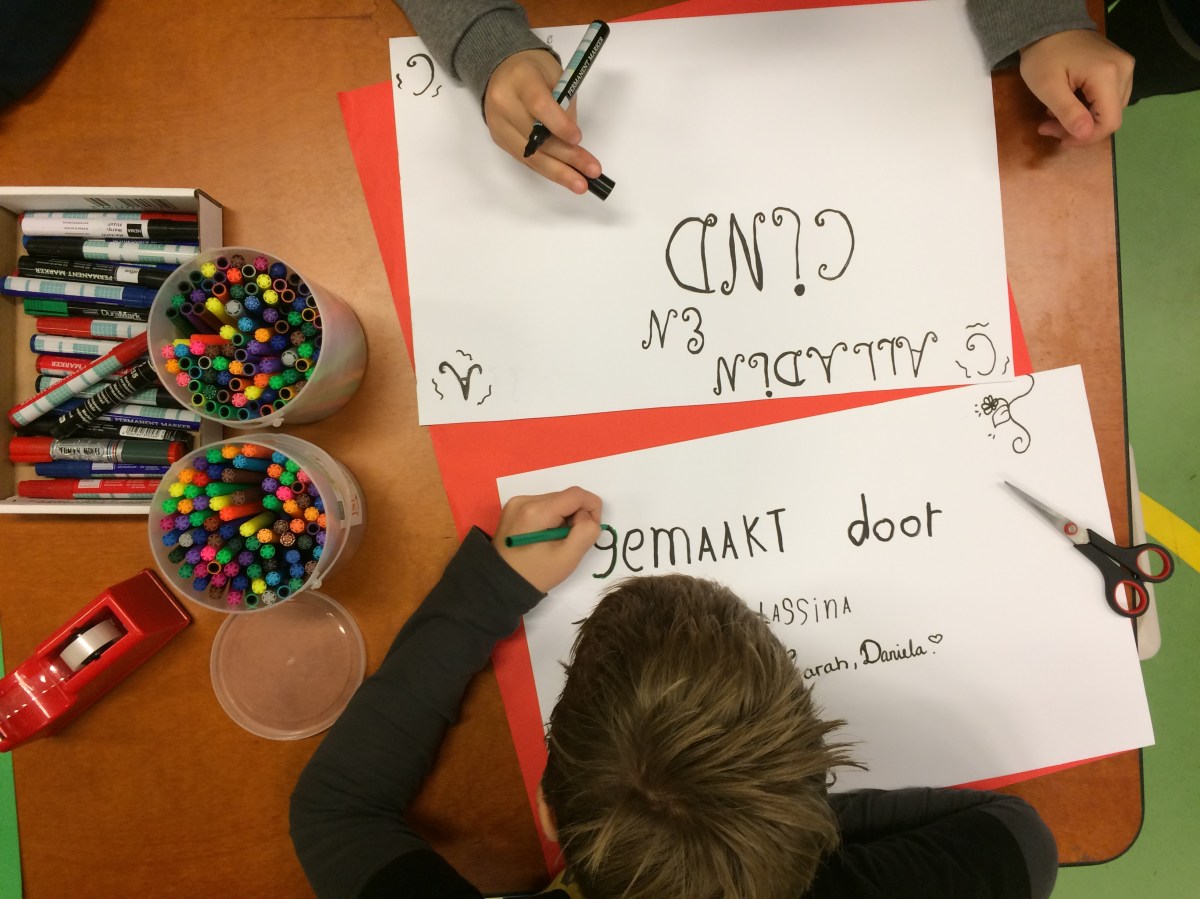 C
ALLADiN
A
EN
CiND
C
gemAAKT door
LASSiNA
arah, Daniela
PERMANENT MARKER
PERMANENT MARKER
DuraMark
MARKER
PERMANENT MARKER